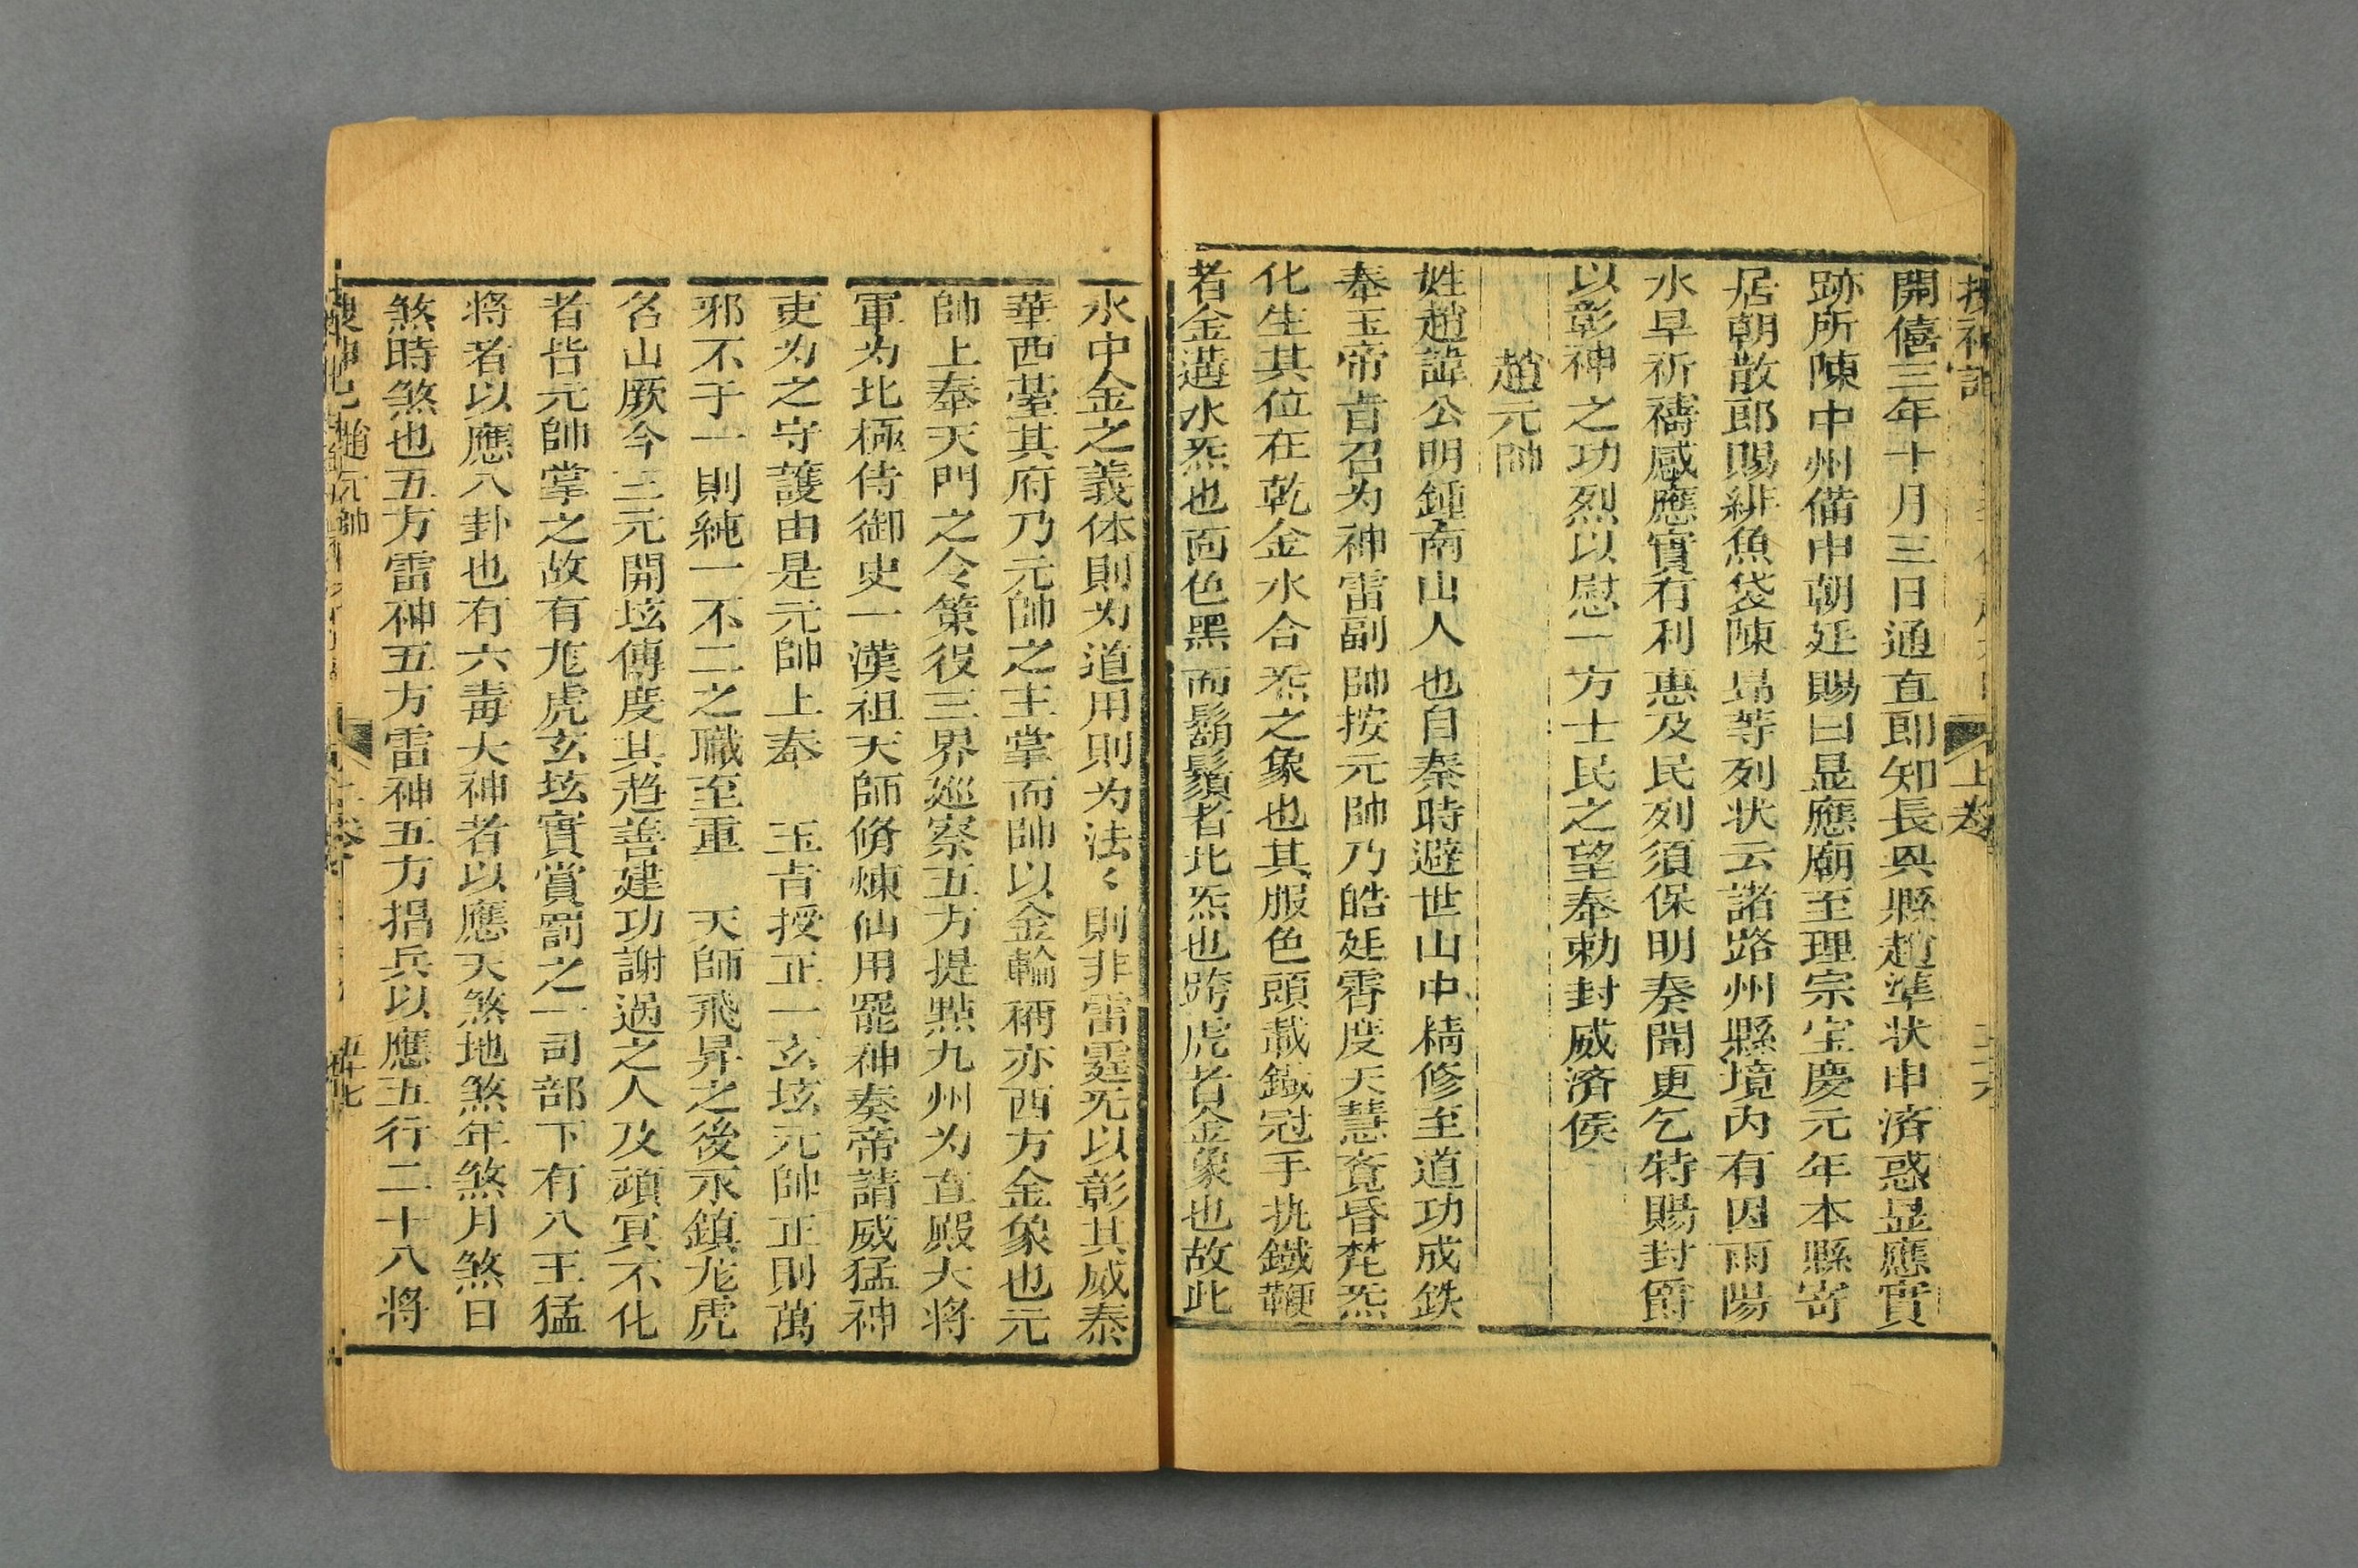 搜神記 上卷
開僖三年十月三日通直郎知長㒷縣趙準状申済惑显應實
跡所陳中州備申朝廷賜曰显應廟至理宗宝慶元年本縣寄
居朝散郎賜緋魚袋陳昂等列状云諸路州縣境内有因雨陽
水旱祈禱感應實有利惠及民列須保明奏聞更乞特賜封爵
以彰神之功烈以慰一方士民之望奉勅封威済侯
趙元帥
姓趙諱公明鍾南山人也自秦時避世山中精修至道功成鉄
奉玉帝旨召为神雷副帥按元帥乃皓廷霄度天慧覔昏梵炁
化生其位在乾金水合炁之象也其服色頭戴鐵冠手执鐵鞭
者金遘水炁也面色黑而鬍鬚者北炁也跨虎者金象也故此
水中金之義体則为道用則为法〻則非雷霆旡以彰其威泰
華西䑓其府乃元帥之主掌而帥以金輪稱亦西方金象也元
帥上奉天門之令策役三界廵察五方提點九州为直殿大将
軍为北極侍御史一漢祖天師脩煉仙用罷神奏帝請威猛神
吏为之守護由是元帥上奉 玉旨授正一玄坛元帥正則萬
邪不于一則純一不二之職至重 天師飛昇之後永鎮龙虎
名山厥今三元開坛傳度其趋善建功謝過之人及頑冥不化
者皆元帥掌之故有龙虎玄坛實賞罰之一司部下有八王猛
将者以應八卦也有六毒大神者以應天煞地煞年煞月煞日
煞時煞也五方雷神五方雷神五方猖兵以應五行二十八将
搜神記 趙元帥 上卷